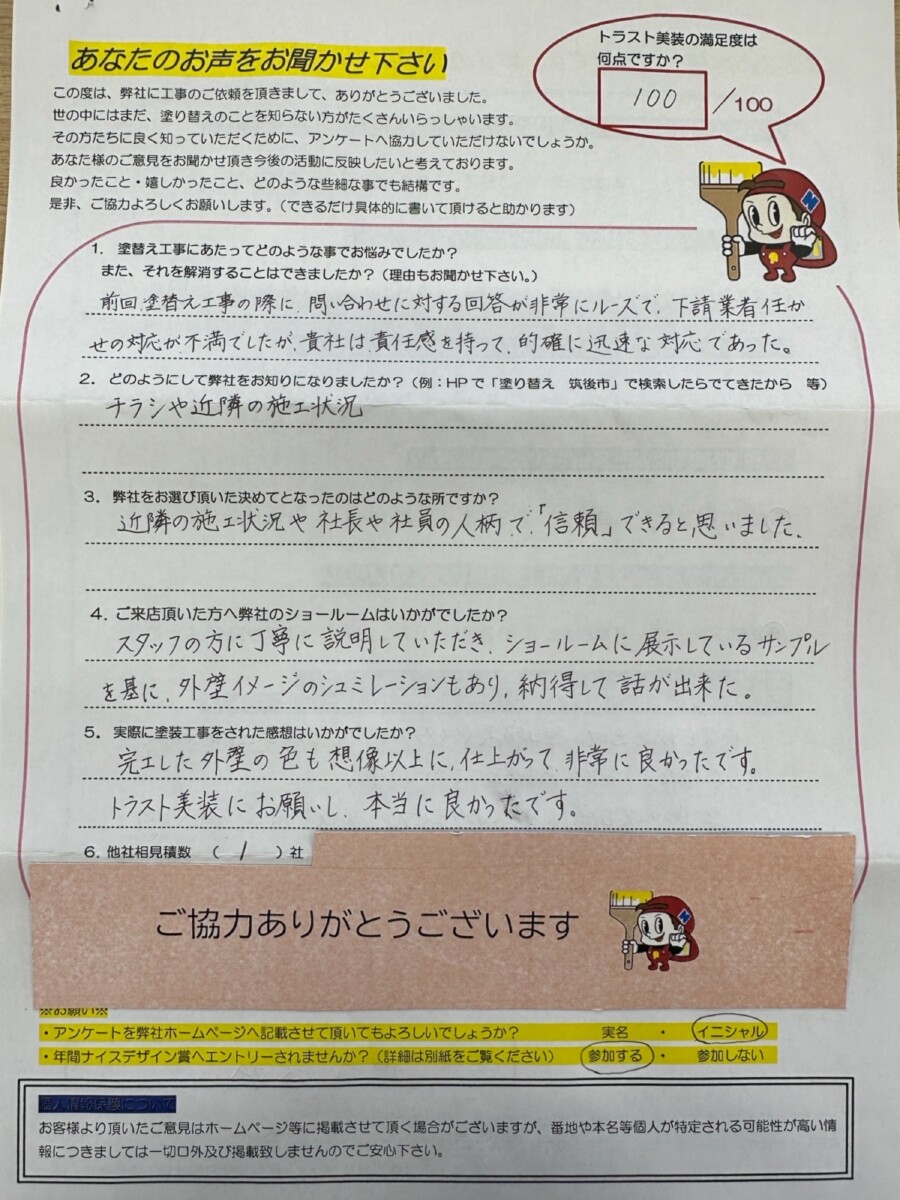 あなたのお声をお聞かせ下さい
トラスト美装の満足度は
何点ですか?
100 /100
この度は、弊社に工事のご依頼を頂きまして、ありがとうございました。
世の中にはまだ、塗り替えのことを知らない方がたくさんいらっしゃいます。
その方たちに良く知っていただくために、アンケートへ協力していただけないでしょうか。
あなた様のご意見をお聞かせ頂き今後の活動に反映したいと考えております。
良かったこと・嬉しかったこと、どのような些細な事でも結構です。
是非、ご協力よろしくお願いします。(できるだけ具体的に書いて頂けると助かります)
1. 塗替え工事にあたってどのような事でお悩みでしたか?
また、それを解消することはできましたか?(理由もお聞かせ下さい。)
前回塗替え工事の際に、問い合わせに対する回答が非常にルーズで、下請業者任か
せの対応が不満でしたが、貴社は責任感を持って、的確に迅速な対応であった。
2. どのようにして弊社をお知りになりましたか?(例:HPで「塗り替え 筑後市」で検索したらでてきたから 等)
チラシや近隣の施工状況
3. 弊社をお選び頂いた決めてとなったのはどのような所ですか?
近隣の施工状況や社長や社員の人柄で、「信頼」できると思いました。
4. ご来店頂いた方へ弊社のショールームはいかがでしたか?
スタッフの方に丁寧に説明していただき、ショールームに展示しているサンプル
を基に、外壁イメージのシュミレーションもあり、納得して話が出来た。
5. 実際に塗装工事をされた感想はいかがでしたか?
完工した外壁の色も想像以上に、仕上がって、非常に良かったです。
トラスト美装にお願いし、本当に良かったです。
6. 他社相見積数 ( 1 )社
ご協力ありがとうございます
※お願い※
・アンケートを弊社ホームページへ記載させて頂いてもよろしいでしょうか? 実名 ・ イニシャル
・年間ナイスデザイン賞へエントリーされませんか?(詳細は別紙をご覧ください) 参加する ・ 参加しない
個人情報保護について
お客様より頂いたご意見はホームページ等に掲載させて頂く場合がございますが、番地や本名等個人が特定される可能性が高い情
報につきましては一切口外及び掲載致しませんのでご安心下さい。